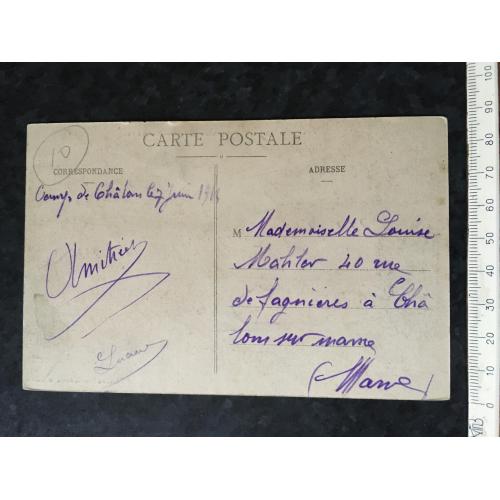 10
CARTE POSTALE
CORRESPONDANCE
ADRESSE
Camp de Châlons le 7 juin 191
Amitiés
M Mademoiselle Louise
Mahler 40 rue
de fagnières à Châ
lons sur marne
(Marne)
0 10 20 30 40 50 60 70 80 90 100